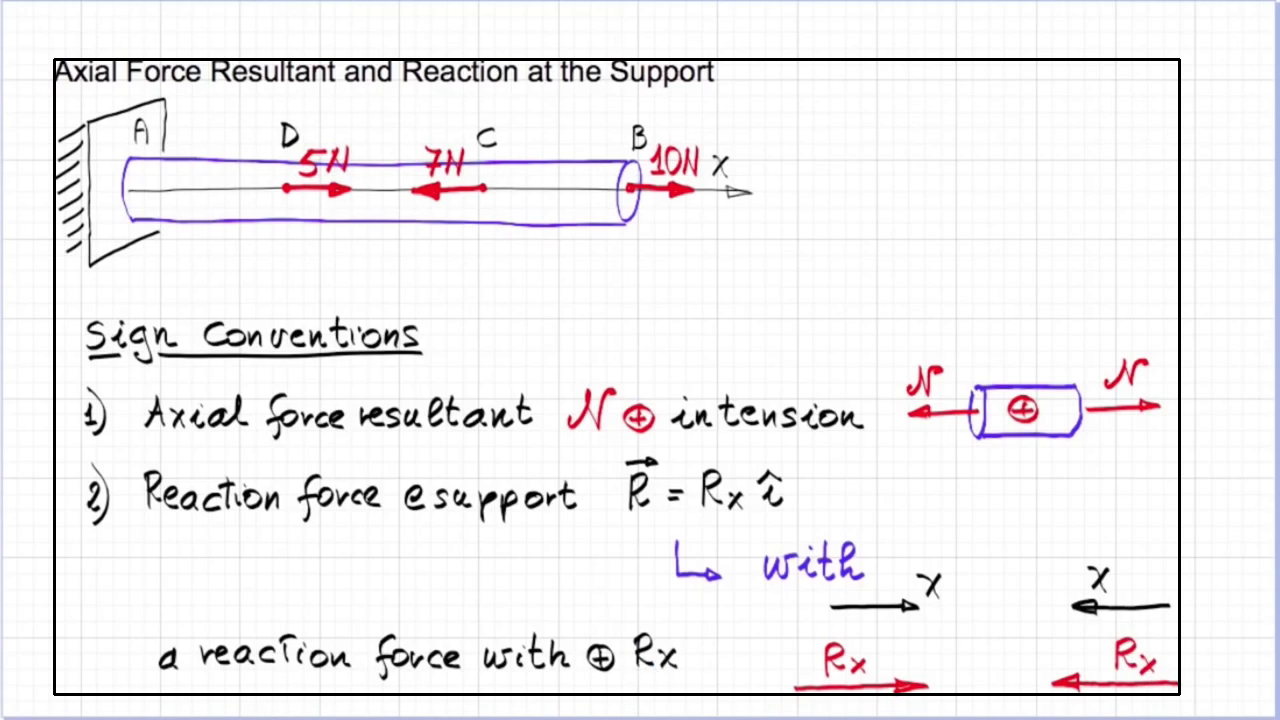 Axial Force Resultant and Reaction at the Support
A D C B
5N 7N 10N X
Sign Conventions
1) Axial force resultant N ⊕ in tension N ⊕ N
2) Reaction force @ support R⃗ = Rx î
↳ with
x x
a reaction force with ⊕ Rx Rx Rx